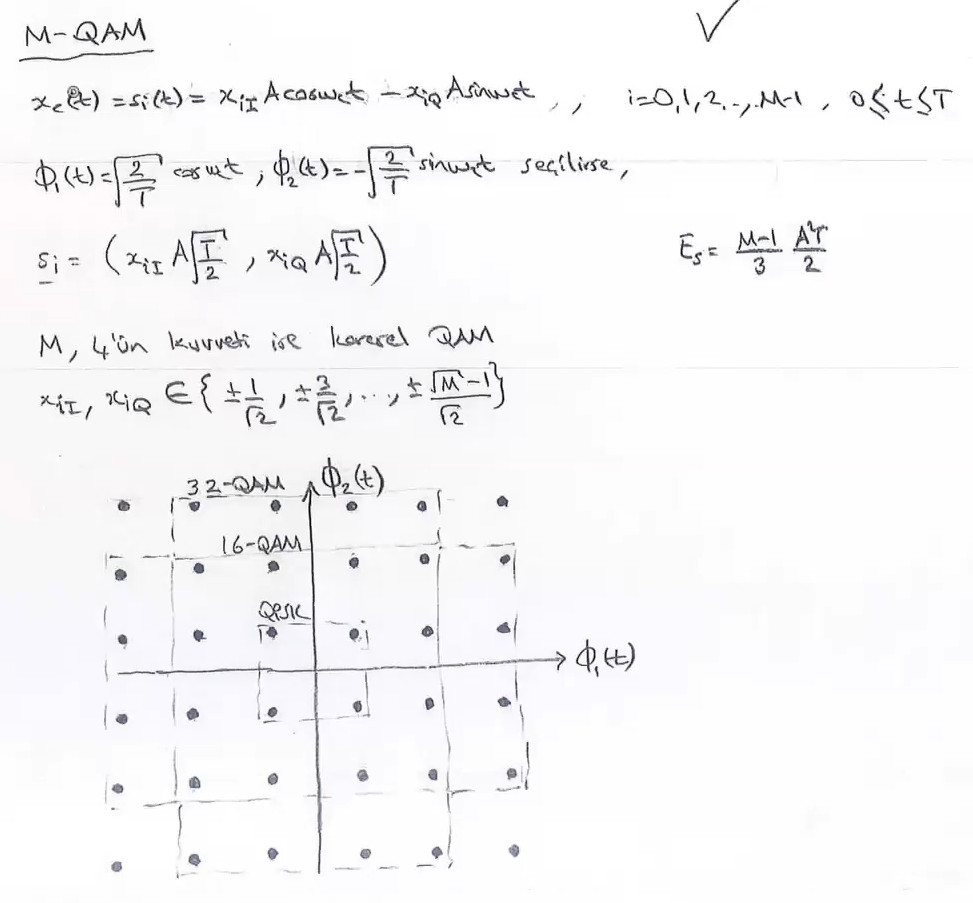 M-QAM
x_c(t) = s_i(t) = x_{iI} A cosω_ct - x_{iQ} A sinω_ct , , i=0,1,2..,.M-1 , 0≤t≤T
ϕ_1(t) = √(2/T) cosω_ct , ϕ_2(t) = -√(2/T) sinω_ct seçilirse,
s_i = (x_{iI} A√(T/2) , x_{iQ} A√(T/2)) E_s = (M-1)/3 A²T/2
M, 4'ün kuvveti ise karesel QAM
x_{iI}, x_{iQ} ∈ { ±1/√2 , ±3/√2 , ..., ±(√M-1)/√2 }
32-QAM ϕ_2(t)
16-QAM
QPSK
ϕ_1(t)